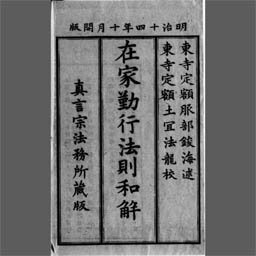 明治十四年十月開版
東寺定額服部鑁海述
東寺定額土宜法龍校
在家勤行法則和解
真言宗法務所蔵版